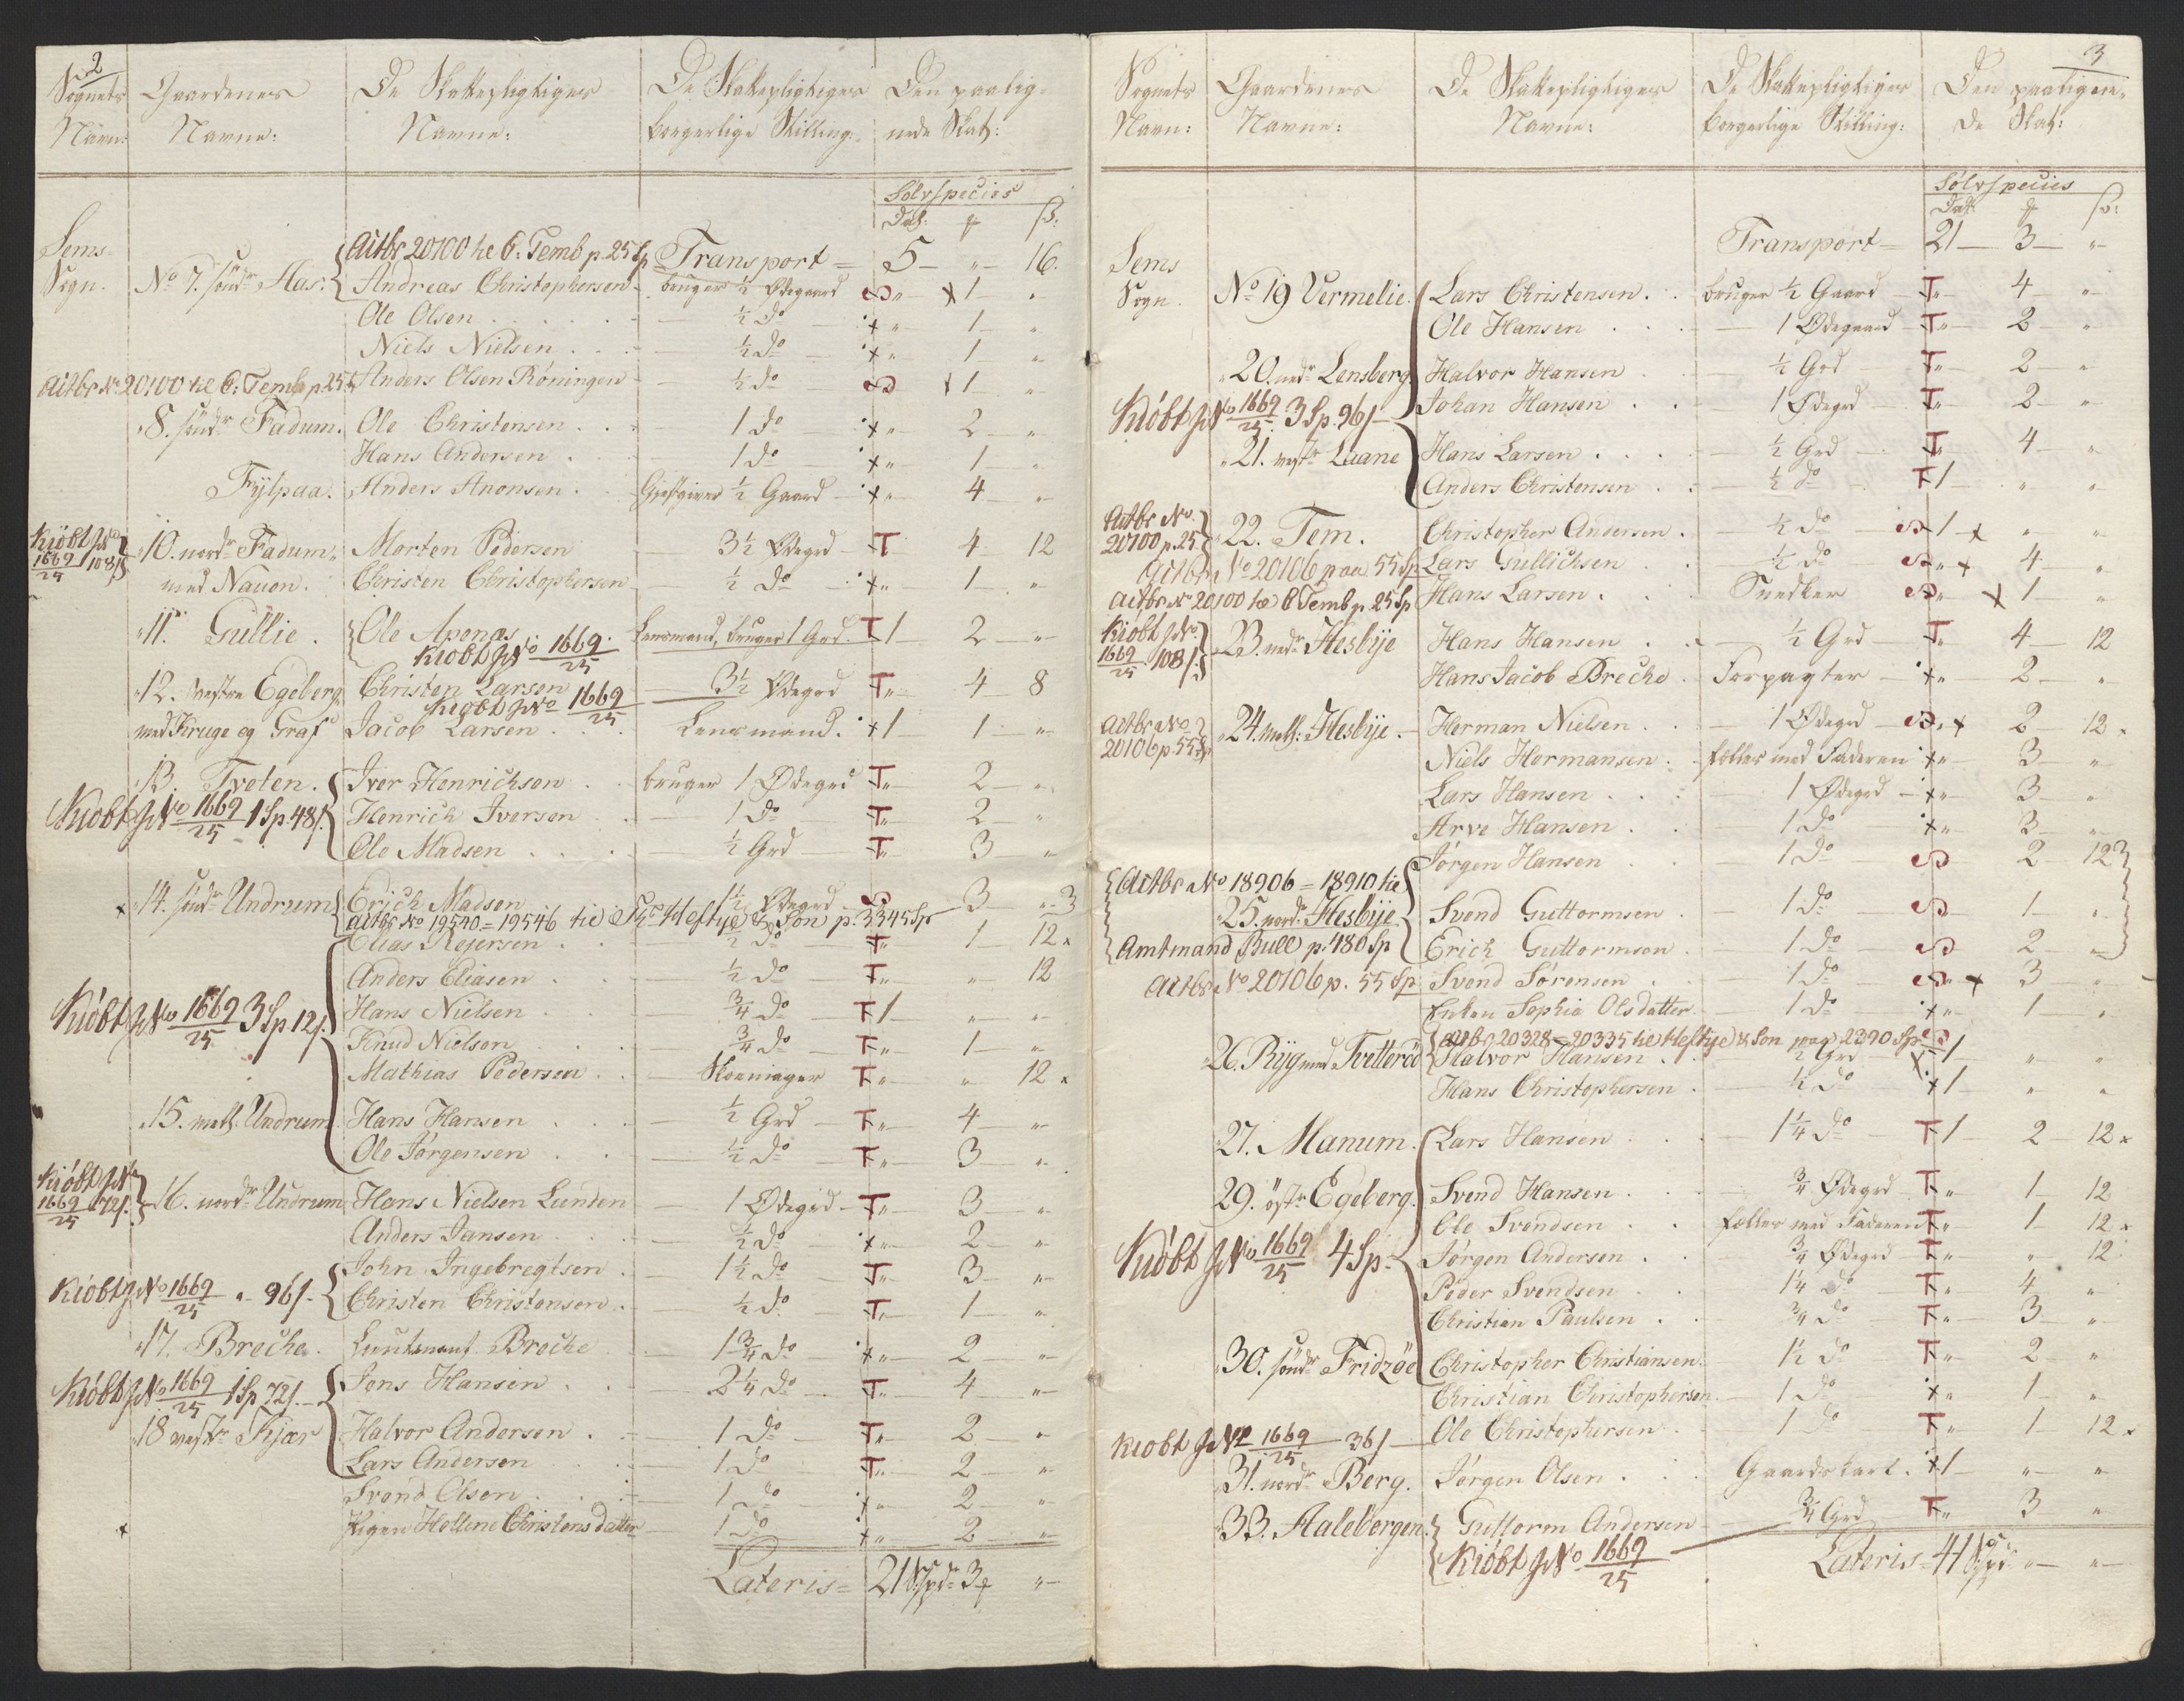 2
Sognets Gaardenes De Skattepligtiges De Skattepligtiges Den paalig-
Navn: Navne: Navne: borgerlige Stilling: nede Skat:
Sølvspecies
Dal: ß:
Sems Actbr 20100 til C: Temb p. 25 Sp Transport = 5 — " — 16.
Sogn. No 7. søndr Aas. Andreas Christophersen bruger ½ Ødegaard " 1 "
Ole Olsen ½ do " 1 "
Niels Nielsen ½ do " 1 "
Actbr No 20100 til C: Temb p. 25 Sp Anders Olsen Röningen ½ do 1 "
" 8. søndr Fadum. Ole Christensen 1 do " 2 "
Hans Andersen 1 do " 1 "
Fylpaa. Anders Anonsen Gjestgiver ½ Gaard " 4 "
Kiöbt No 1669/25 108 ß " 10. nordr Fadum Morten Pedersen 3½ Ødegrd T 4 12
med Nauon. Christen Christophersen ½ do " 1 "
" 11. Gullie. Ole Aponas Lensmand, bruger 1 Grd. T 1 2 "
Kiöbt No 1669/25
" 12. vestre Egeberg Christen Larsen 3½ Ødegrd T " 4 8
Kiöbt No 1669/25
med Kruge og Graf Jacob Larsen Lensmand. 1 1 "
" 13. Tveten. Iver Henrichsen bruger 1 Ødegrd T " 2 "
Kiöbt No 1669/25 1 Sp. 48 ß Henrich Iversen 1 do T " 2 "
Ole Madsen ½ Grd T " 3 "
" 14. søndr Undrum Erich Madsen 1½ Ødegrd 3 " 3
Actbr No 19540 = 19546 til Heftye & Son p. 3345 Sp
Elias Rejersen ½ do T " 1 12
Anders Eliasen ½ do T " " 12
Kiöbt No 1669/25 3 Sp 12 ß Hans Nielsen ¾ do T 1 " "
Knud Nielsen ¾ do T " 1 "
Mathias Pedersen Skoemager T " " 12
" 15. mell. Undrum Hans Hansen ½ Grd T " 4 "
Ole Jørgensen ½ do T " 3 "
Kiöbt No 1669/25 72 ß " 16. nordr Undrum Hans Nielsen Lunden 1 Ødegrd T " 3 "
Anders Jansen ½ do " 2 "
John Ingebregtsen 1½ do T " 3 "
Kiöbt No 1669/25 " 96 ß Christen Christensen ½ do T " 1 "
" 17. Breche. Lieutenant Breche 1¾ do " 2 "
Kiöbt No 1669/25 1 Sp 72 ß Jens Hansen 2¼ do T " 4 "
" 18 vestr Kjær Halvor Andersen 1 do T " 2 "
Lars Andersen 1 do T " 2 "
Svend Olsen 1 do " 2 "
Pigen Hellene Christens Datter 1 do " 2 "
Lateris = 21 Spdr 3 "
3
Sognets Gaardenes De Skattepligtiges De Skattepligtiges Den paaligne-
Navn: Navne: Navne: borgerlige Stilling: de Skat:
Sølvspecies
Dal: ß:
Transport = 21 — 3 — "
Sems
Sogn. No 19 Vermelie. Lars Christensen. bruger ½ Gaard T " 4 "
Ole Hansen 1 Ødegaard T " 2 "
" 20. nedr Lensberg Halvor Hansen ½ Grd T " 2 "
Kiöbt No 1669/25 3 Sp. 96 ß Johan Hansen 1 Ødegrd T " 2 "
" 21. vestr Laane Hans Larsen ½ Grd T " 4 "
Anders Christensen ½ do T 1 " "
Actbr No 20100 p. 25 22. Tem. Christopher Andersen ½ do 1 " "
Actbr No 20106 paa 55 Sp Lars Gullichsen ½ do " 4 "
Actbr No 20100 til C Temb p. 25 Sp Hans Larsen Snedker " 1 "
Kiöbt No 1669/25 108 ß " 23. nedr Hesbye Hans Hansen ½ Grd T " 4 12
Hans Jacob Breche Forpagter " 2 "
Actbr No 20106 p 55 Sp " 24. mell: Hesbye. Herman Nielsen 1 Ødegrd " 2 12
Niels Hermansen. fælles med Faderen " 3 "
Lars Hansen 1 Ødegrd " 3 "
Arve Hansen 1 do " 3 "
Jørgen Hansen 1 do 2 12
Actbr No 18906 = 18910 til
" 25. nordr Hesbye Svend Guttormsen 1 do 1 "
Amtmand Bull p. 480 Sp Erich Guttormsen 1 do 2 "
Actbr No 20106 p. 55 Sp Svend Sørensen 1 do " 3 "
Enken Sophia Olsdatter 1 do " 1 "
Actbr 20328 = 20335 til Heftye & Son paa 2390 Sp
" 26. Ryg med Tvetteröd Halvor Hansen ½ Grd 1 " "
Hans Christophersen ½ do 1 " "
" 27. Manum. Lars Hansen 1¼ do T 1 2 12
" 29. östr Egeberg. Svend Hansen ¾ Ødegrd T " 1 12
Ole Svendsen fælles med Faderen T " 1 12
Kiöbt No 1669/25 4 Sp. Jørgen Andersen ¾ Ødegrd T " " 12
Peder Svendsen 1¼ do T " 4 "
Christian Paulsen ¾ do T " 3 "
" 30. søndr Fridzöe Christopher Christiansen 1½ do T " 2 "
Christian Christophersen 1 do " 1 "
Kiöbt No 1669/25 36 ß Ole Christophersen 1 do T " 1 12
" 31. nordr Berg. Jørgen Olsen Gaardskarl. 1 " "
" 33. Halebergen. Guttorm Andersen ¾ Grd T " 3 "
Kiöbt No 1669/25 Lateris = 41 Spd " "